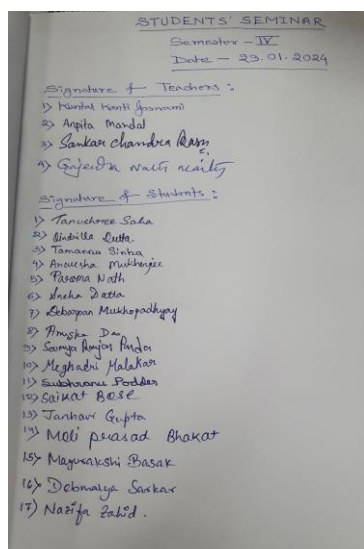 STUDENTS' SEMINAR
Semester - IV
Date - 23.01.2024
Signature of Teachers :
1) Kuntal Kanti Goswami
2) Arpita Mandal
3) Sankar chandra
4) Gajendra Nath Maity
Signature of Students :
1) Tanushree Saha
2) Oindrilla Dutta
3) Tamanna Sinha
4) Anwesha Mukherjee
5) Paroma Nath
6) Sneha Datta
7) Debarpan Mukhopadhyay
8) Anuska Das
9) Soumya Ranjan
10) Meghadri Malakar
11) Subhranu Podder
12) Saikat BOSE
13) Janhavi Gupta
14) Moli prasad Bhakat
15) Mayurakshi Basak
16) Debmalya Sarkar
17) Nazifa Zahid.